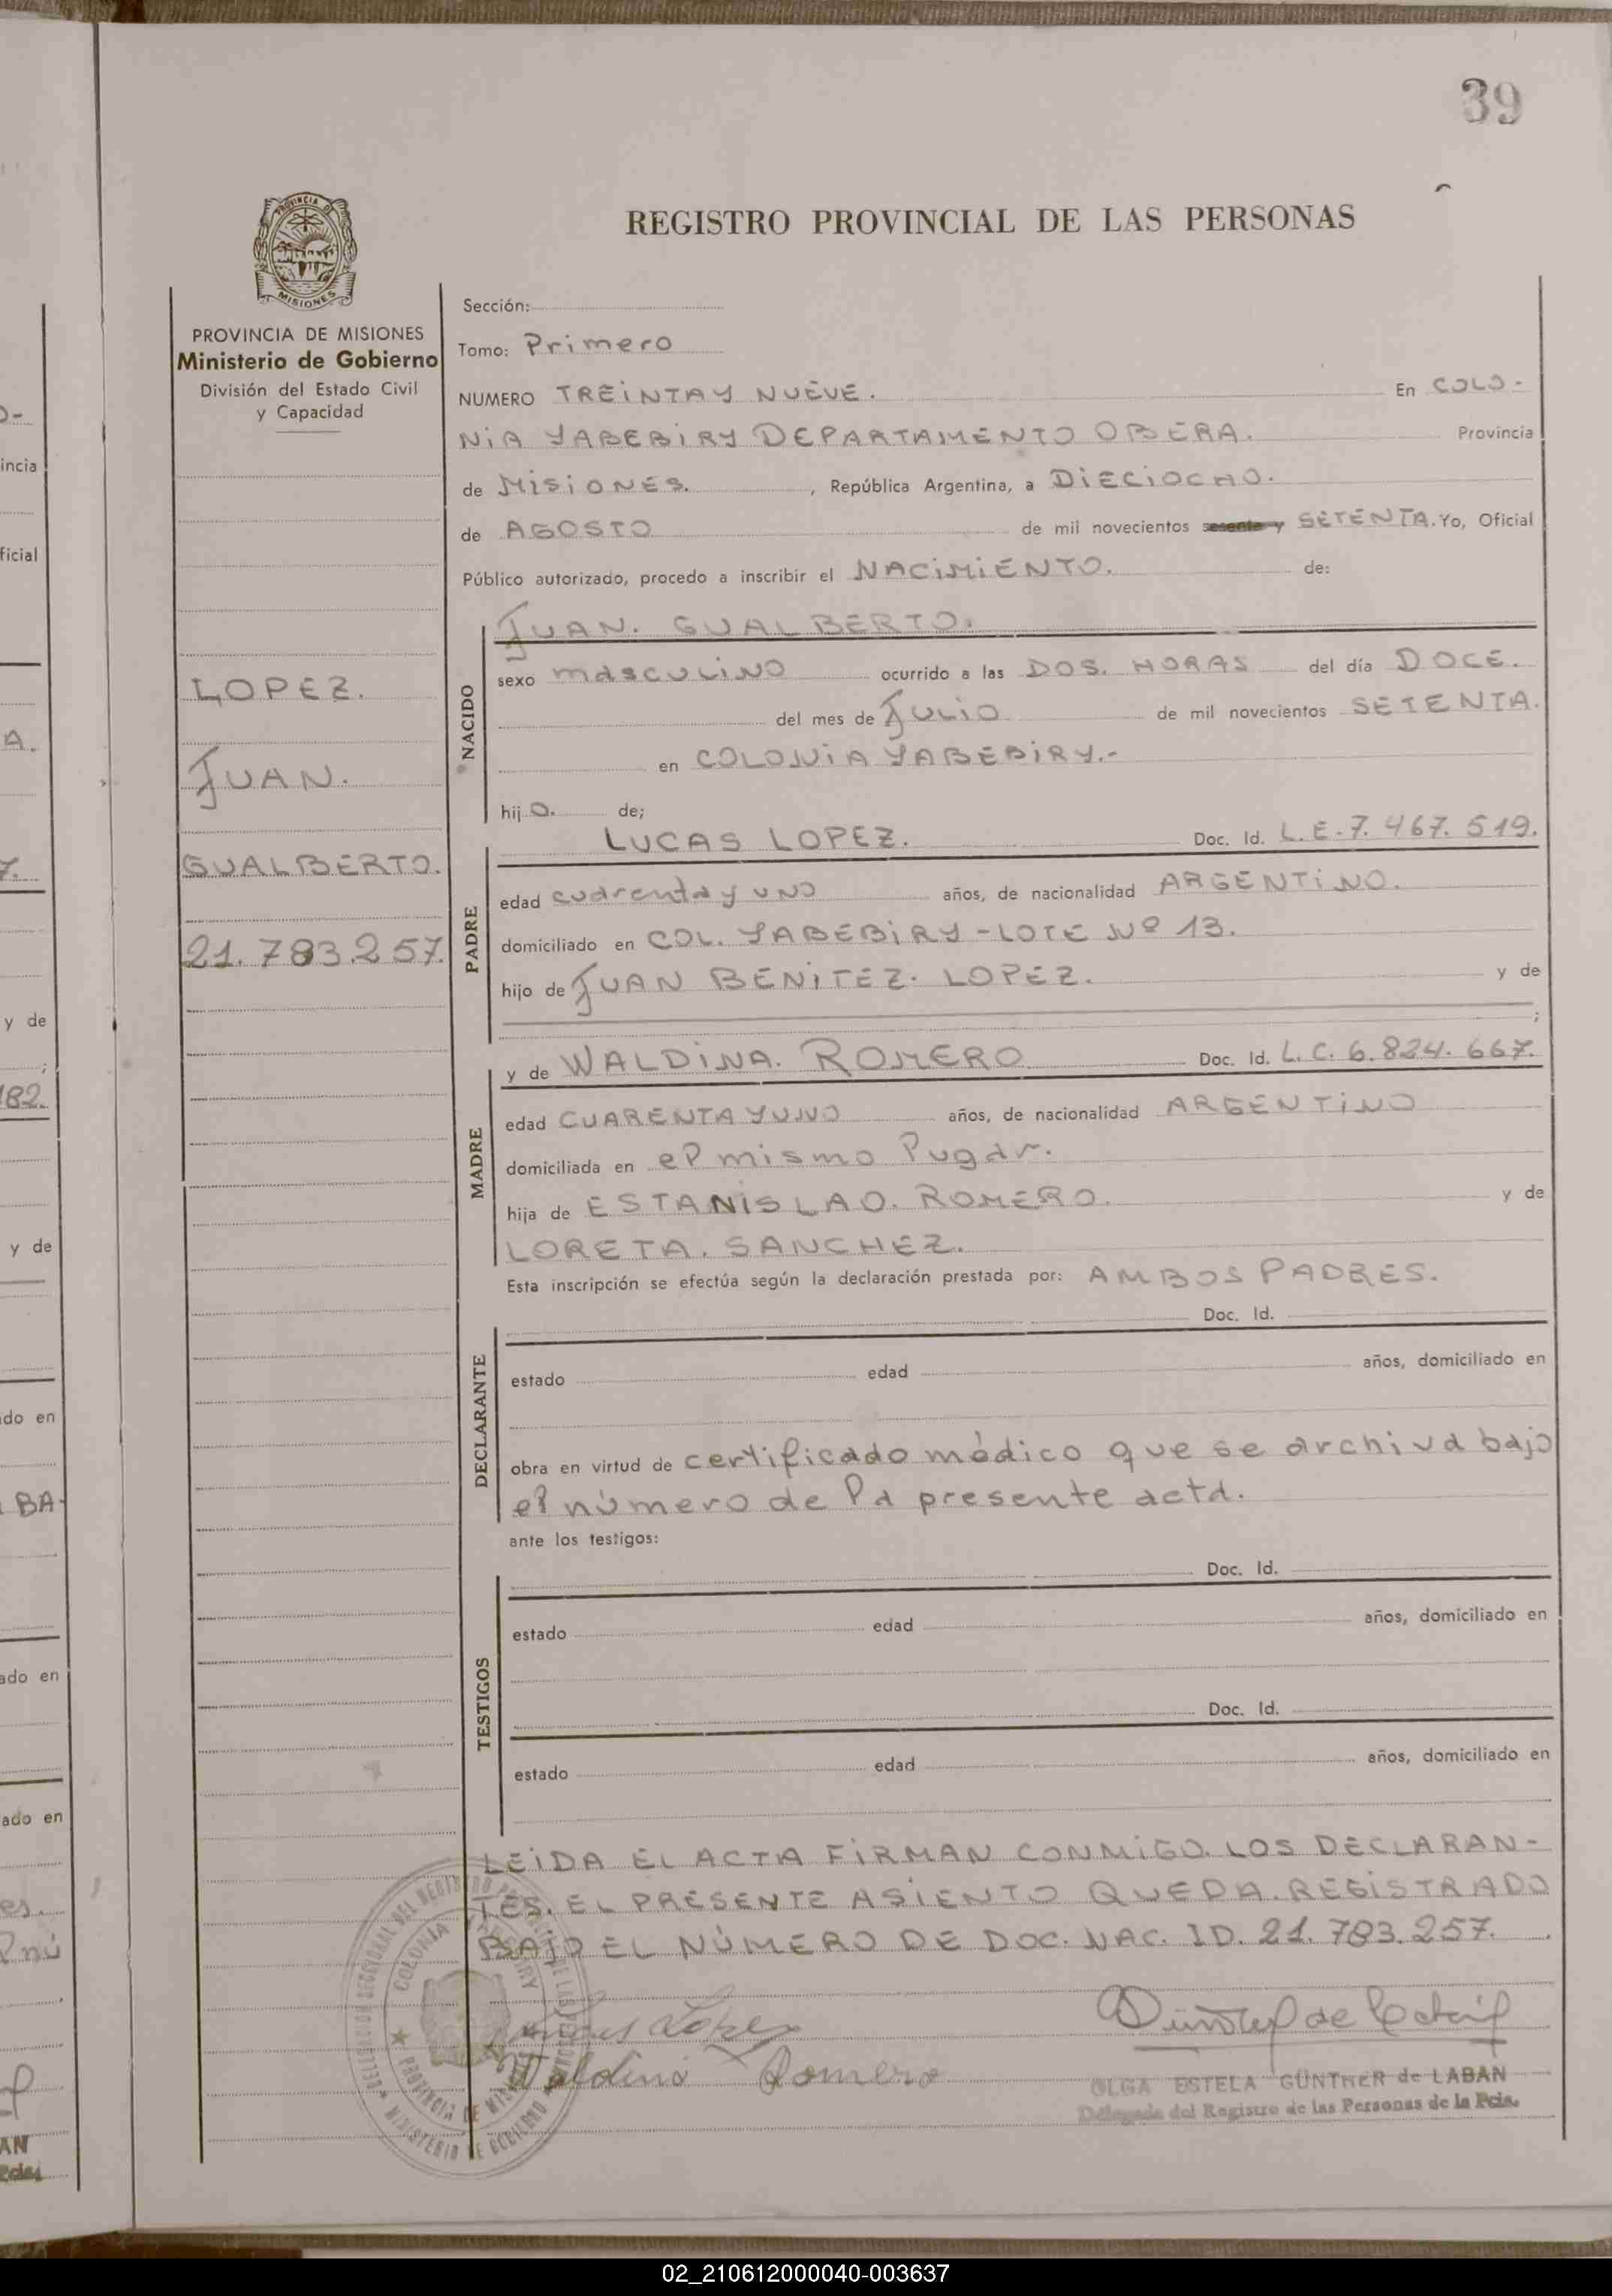 39
REGISTRO PROVINCIAL DE LAS PERSONAS
PROVINCIA DE MISIONES
Ministerio de Gobierno
División del Estado Civil
y Capacidad
LOPEZ.
JUAN.
GUALBERTO.
21.783.257.
Sección:
Tomo: Primero
NUMERO TREINTA Y NUEVE. En COLO-
NIA YABEBIRY DEPARTAMENTO OBERA. Provincia
de MISIONES. , República Argentina, a DIECIOCHO.
de AGOSTO de mil novecientos sesenta y SETENTA. Yo, Oficial
Público autorizado, procedo a inscribir el NACIMIENTO. de:
NACIDO
JUAN. GUALBERTO.
sexo masculino ocurrido a las DOS. HORAS del día DOCE.
del mes de JULIO de mil novecientos SETENTA.
en COLONIA YABEBIRY.-
hijo. de;
PADRE
LUCAS LOPEZ. Doc. Id. L.E.7.467.519.
edad cuarenta y uno años, de nacionalidad ARGENTINO.
domiciliado en COL. YABEBIRY-LOTE Nº 13.
hijo de JUAN BENITEZ. LOPEZ. y de
;
MADRE
y de WALDINA. ROMERO Doc. Id. L.C.6.824.667.
edad CUARENTA Y UNO años, de nacionalidad ARGENTINO
domiciliada en el mismo lugar.
hija de ESTANISLAO. ROMERO. y de
LORETA. SANCHEZ.
Esta inscripción se efectúa según la declaración prestada por: AMBOS PADRES.
DECLARANTE
Doc. Id.
estado edad años, domiciliado en
obra en virtud de certificado médico que se archiva bajo
el número de la presente acta.
ante los testigos:
TESTIGOS
Doc. Id.
estado edad años, domiciliado en
Doc. Id.
estado edad años, domiciliado en
LEIDA EL ACTA FIRMAN CONMIGO. LOS DECLARAN-
TES. EL PRESENTE ASIENTO QUEDA. REGISTRADO
BAJO EL NÚMERO DE DOC. NAC. ID. 21.783.257.
Lucas Lopez
Waldina Romero
OLGA ESTELA GÜNTHER de LABAN
Delegada del Registro de las Personas de la Pcia.
COLONIA YABEBIRY
PROVINCIA DE MISIONES
MINISTERIO DE GOBIERNO
02_210612000040-003637